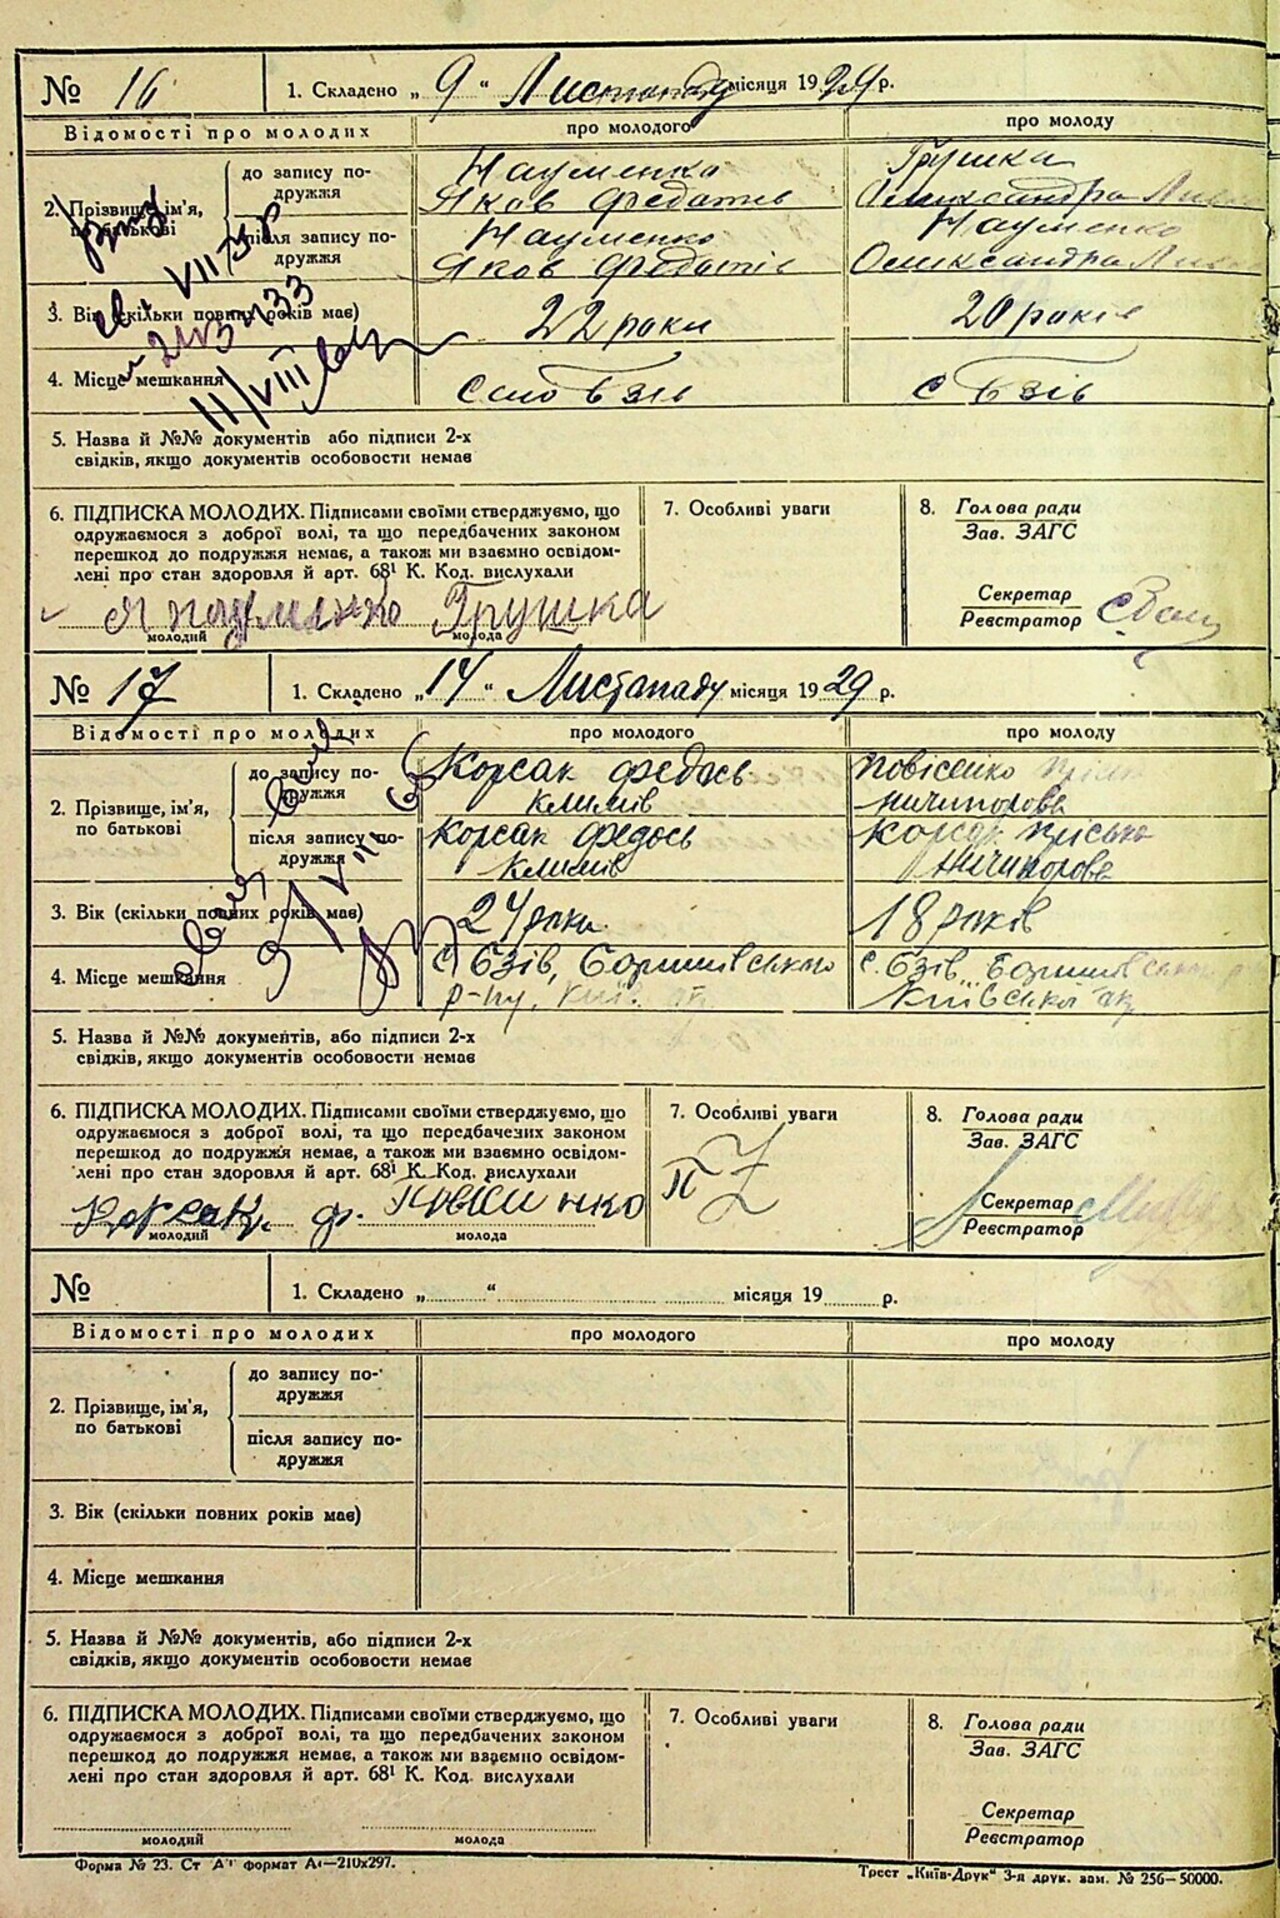 № 16 1. Складено „ 9 “ Листопаду місяця 1929 р.
Відомості про молодих про молодого про молоду
2. Прізвище, ім'я, по батькові
до запису по-
дружжя
Науменко
Яков Федотів
Грушка
Олександра
після запису по-
дружжя
Науменко
Яков Федотів
Науменко
Олександра
3. Вік (скільки повних років має) 22 роки 20 років
4. Місце мешкання Село Бзів с Бзів
5. Назва й №№ документів або підписи 2-х
свідків, якщо документів особовости немає
6. ПІДПИСКА МОЛОДИХ. Підписами своїми стверджуємо, що
одружаємося з доброї волі, та що передбачених законом
перешкод до подружжя немає, а також ми взаємно освідом-
лені про стан здоров'я й арт. 68¹ К. Код. вислухали
Я Науменко Грушка
молодий молода
7. Особливі уваги
8. Голова ради
Зав. ЗАГС
Секретар
Реєстратор
№ 17 1. Складено „ 14 “ Листопаду місяця 1929 р.
Відомості про молодих про молодого про молоду
2. Прізвище, ім'я,
по батькові
до запису по-
дружжя
Корсак Федось
Климів
Повісенко
Ничипорова
після запису по-
дружжя
Корсак Федось
Климів
Корсак Пріська
Ничипорова
3. Вік (скільки повних років має) 24 роки 18 років
4. Місце мешкання
с. Бзів, Боришівського
р-ну, Київ.
с. Бзів, Боришівського
Київської ок
5. Назва й №№ документів, або підписи 2-х
свідків, якщо документів особовости немає
6. ПІДПИСКА МОЛОДИХ. Підписами своїми стверджуємо, що
одружаємося з доброї волі, та що передбачених законом
перешкод до подружжя немає, а також ми взаємно освідом-
лені про стан здоровля й арт. 68¹ К. Код. вислухали
Корсак ф. Повісинко
молодий молода
7. Особливі уваги
8. Голова ради
Зав. ЗАГС
Секретар
Реєстратор
№ 1. Складено „ “ місяця 19 р.
Відомості про молодих про молодого про молоду
2. Прізвище, ім'я,
по батькові
до запису по-
дружжя
після запису по-
дружжя
3. Вік (скільки повних років має)
4. Місце мешкання
5. Назва й №№ документів, або підписи 2-х
свідків, якщо документів особовости немає
6. ПІДПИСКА МОЛОДИХ. Підписами своїми стверджуємо, що
одружаємося з доброї волі, та що передбачених законом
перешкод до подружжя немає, а також ми взаємно освідом-
лені про стан здоровля й арт. 68¹ К. Код. вислухали
молодий молода
7. Особливі уваги
8. Голова ради
Зав. ЗАГС
Секретар
Реєстратор
Форма № 23. Ст А¹ формат А₄—210х297.
Трест „Київ-Друк“ 3-я друк. зам. № 256—50000.